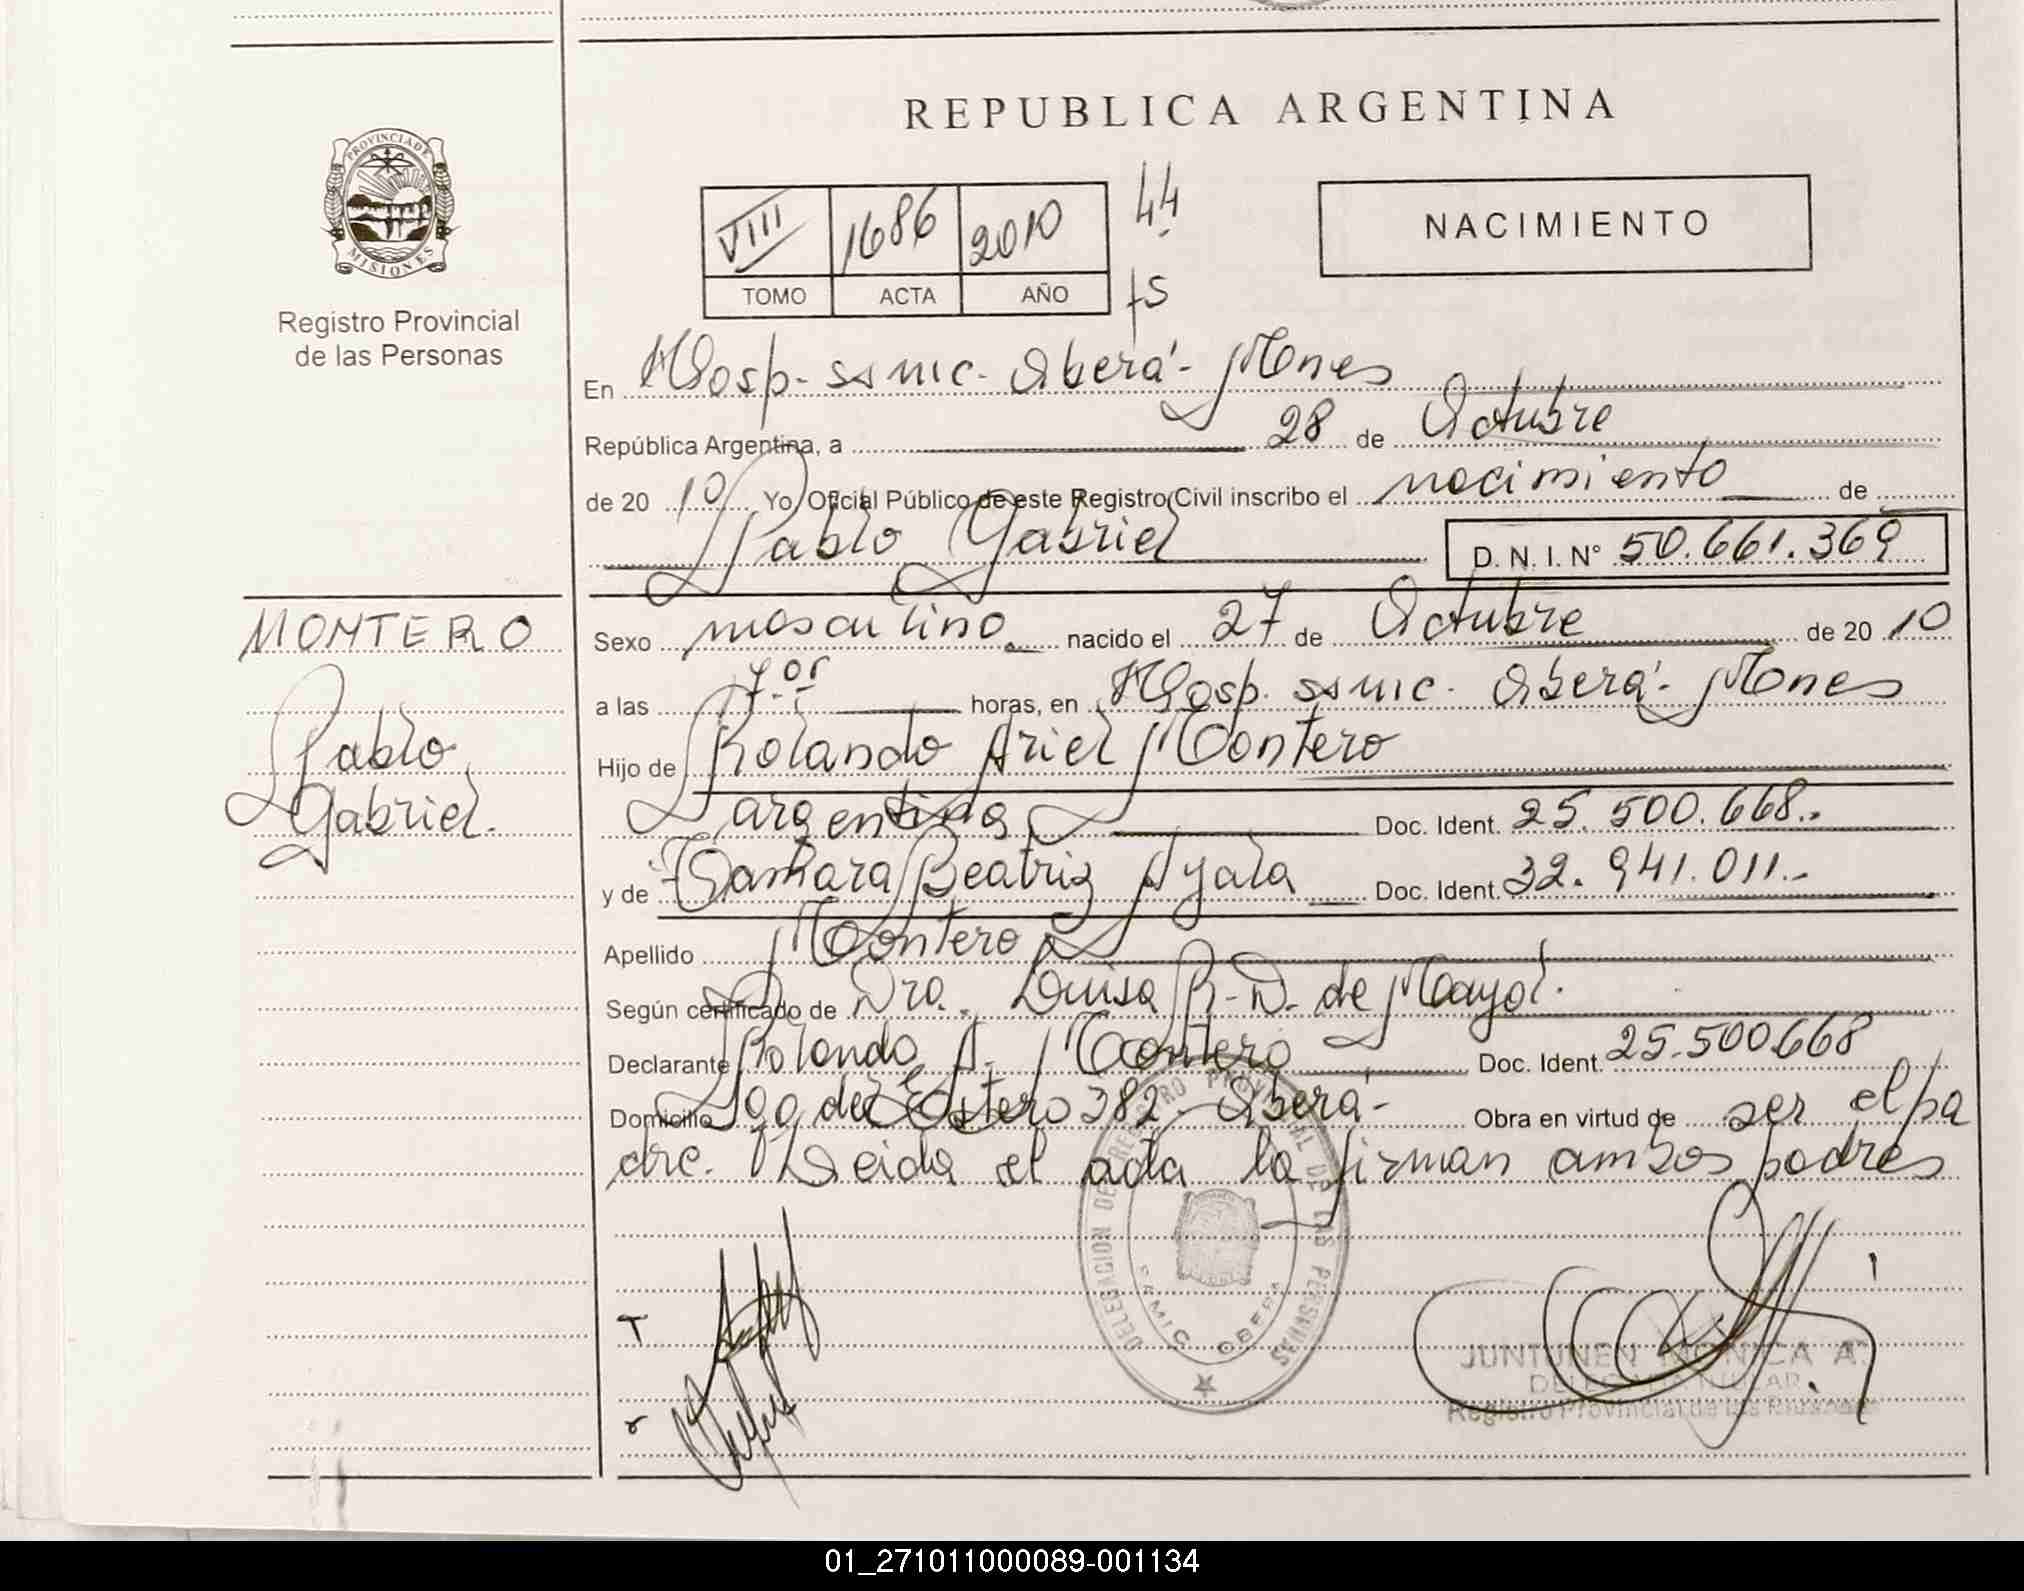 REPUBLICA ARGENTINA
PROVINCIA DE
MISIONES
Registro Provincial
de las Personas
VIII 1686 2010 44
TOMO ACTA AÑO
NACIMIENTO
En Hosp. ssmic. Oberá - Mnes
República Argentina, a 28 de Octubre
de 20 10 Yo Oficial Público de este Registro Civil inscribo el nacimiento de
Pablo Gabriel D. N. I. N° 50.661.369
MONTERO
Pablo
Gabriel.
Sexo masculino nacido el 27 de Octubre de 20 10
a las horas, en Hosp. ssmic. Oberá - Mnes
Hijo de Rolando Ariel Montero
argentina Doc. Ident. 25.500.668.-
y de Tamara Beatriz Ayala Doc. Ident. 32.941.011.-
Apellido Montero
Según certificado de Dra. Luisa R. D. de Mayol.
Declarante Rolando A. Montero Doc. Ident. 25.500.668
Domicilio Sgo. del Estero 382 - Oberá - Obra en virtud de ser el pa
dre. Leida el acta la firman ambos padres
DELEGACION DE REGISTRO PROVINCIAL DE LAS PERSONAS
SAMIC OBERA
JUNTUNEN MONICA A.
DELEGADA TITULAR
Registro Provincial de las Personas
01_271011000089-001134